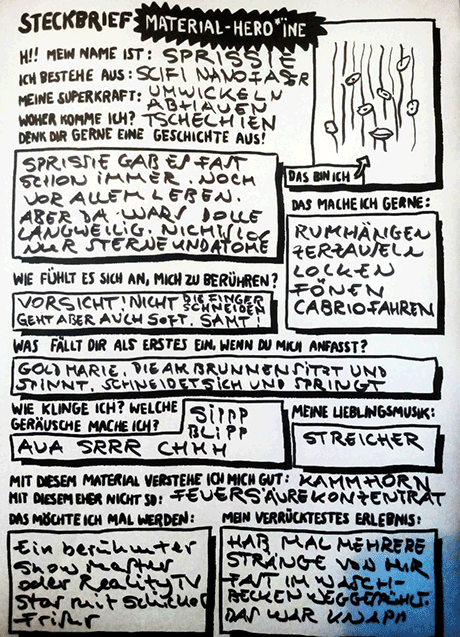 STECKBRIEF MATERIAL-HERO*INE
H!! MEIN NAME IST: SPRISSIE
ICH BESTEHE AUS: SCIFI NANOFASER
MEINE SUPERKRAFT: UMWICKELN
ABHAUEN
WOHER KOMME ICH? TSCHECHIEN
DENK DIR GERNE EINE GESCHICHTE AUS!
SPRISSIE GAB ES FAST
SCHON IMMER. NOCH
VOR ALLEM LEBEN.
ABER DA WARS DOLLE
LANGWEILIG. NICHTS LOS
NUR STERNE UND ATOME
DAS BIN ICH
DAS MACHE ICH GERNE:
RUMHÄNGEN
ZERZAUSELN
LOCKEN
FÖNEN
CABRIOFAHREN
WIE FÜHLT ES SICH AN, MICH ZU BERÜHREN?
VORSICHT! NICHT DIE FINGER SCHNEIDEN
GEHT ABER AUCH SOFT. SAMT!
WAS FÄLLT DIR ALS ERSTES EIN, WENN DU MICH ANFASST?
GOLDMARIE. DIE AM BRUNNEN SITZT UND
SPINNT. SCHNEIDET SICH UND SPRINGT
WIE KLINGE ICH? WELCHE
GERÄUSCHE MACHE ICH?
SIPPP
BLIPP
AUA SRRR CHHH
MEINE LIEBLINGSMUSIK:
STREICHER
MIT DIESEM MATERIAL VERSTEHE ICH MICH GUT: KAMMHORN
MIT DIESEM EHER NICHT SO: FEUERSÄUREKONZENTRAT
DAS MÖCHTE ICH MAL WERDEN:
Ein berühmter
Showmaster
oder Reality TV
Star mit schicker
Frisur
MEIN VERRÜCKTESTES ERLEBNIS:
HAB MAL MEHRERE
STRÄNGE VON MIR
FAST IM WASCH-
BECKEN WEGGESPÜLT.
DAS WAR KNAPP